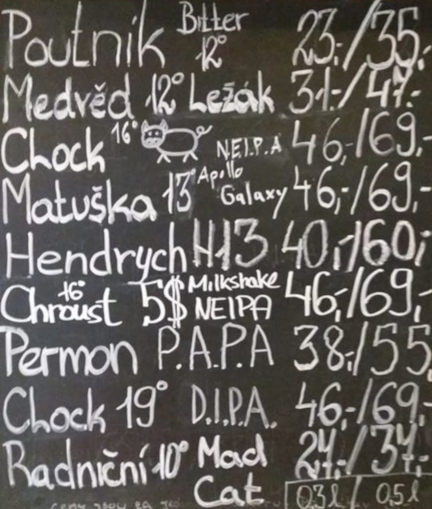 Poutník Bitter 12° 23,-/35,-
Medvěd 12° Ležák 31,-/47,-
Chock 16° N.E.I.P.A 46,-/69,-
Matuška 13° Apollo Galaxy 46,-/69,-
Hendrych H13 40,-/60,-
Chroust 16° 5$ Milkshake NEIPA 46,-/69,-
Permon P.A.P.A 38,-/55,
Chock 19° D.I.P.A. 46,-/69,-
Radniční 10° Mad Cat 24,-/37,-
0,3l / 0,5l